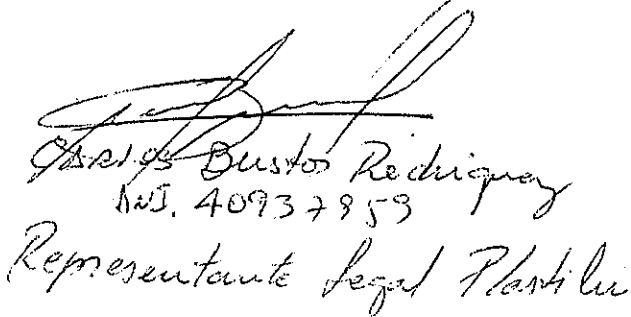 Carlos Bustos Rodriguez
DNI. 40937959
Representante Legal Plastili